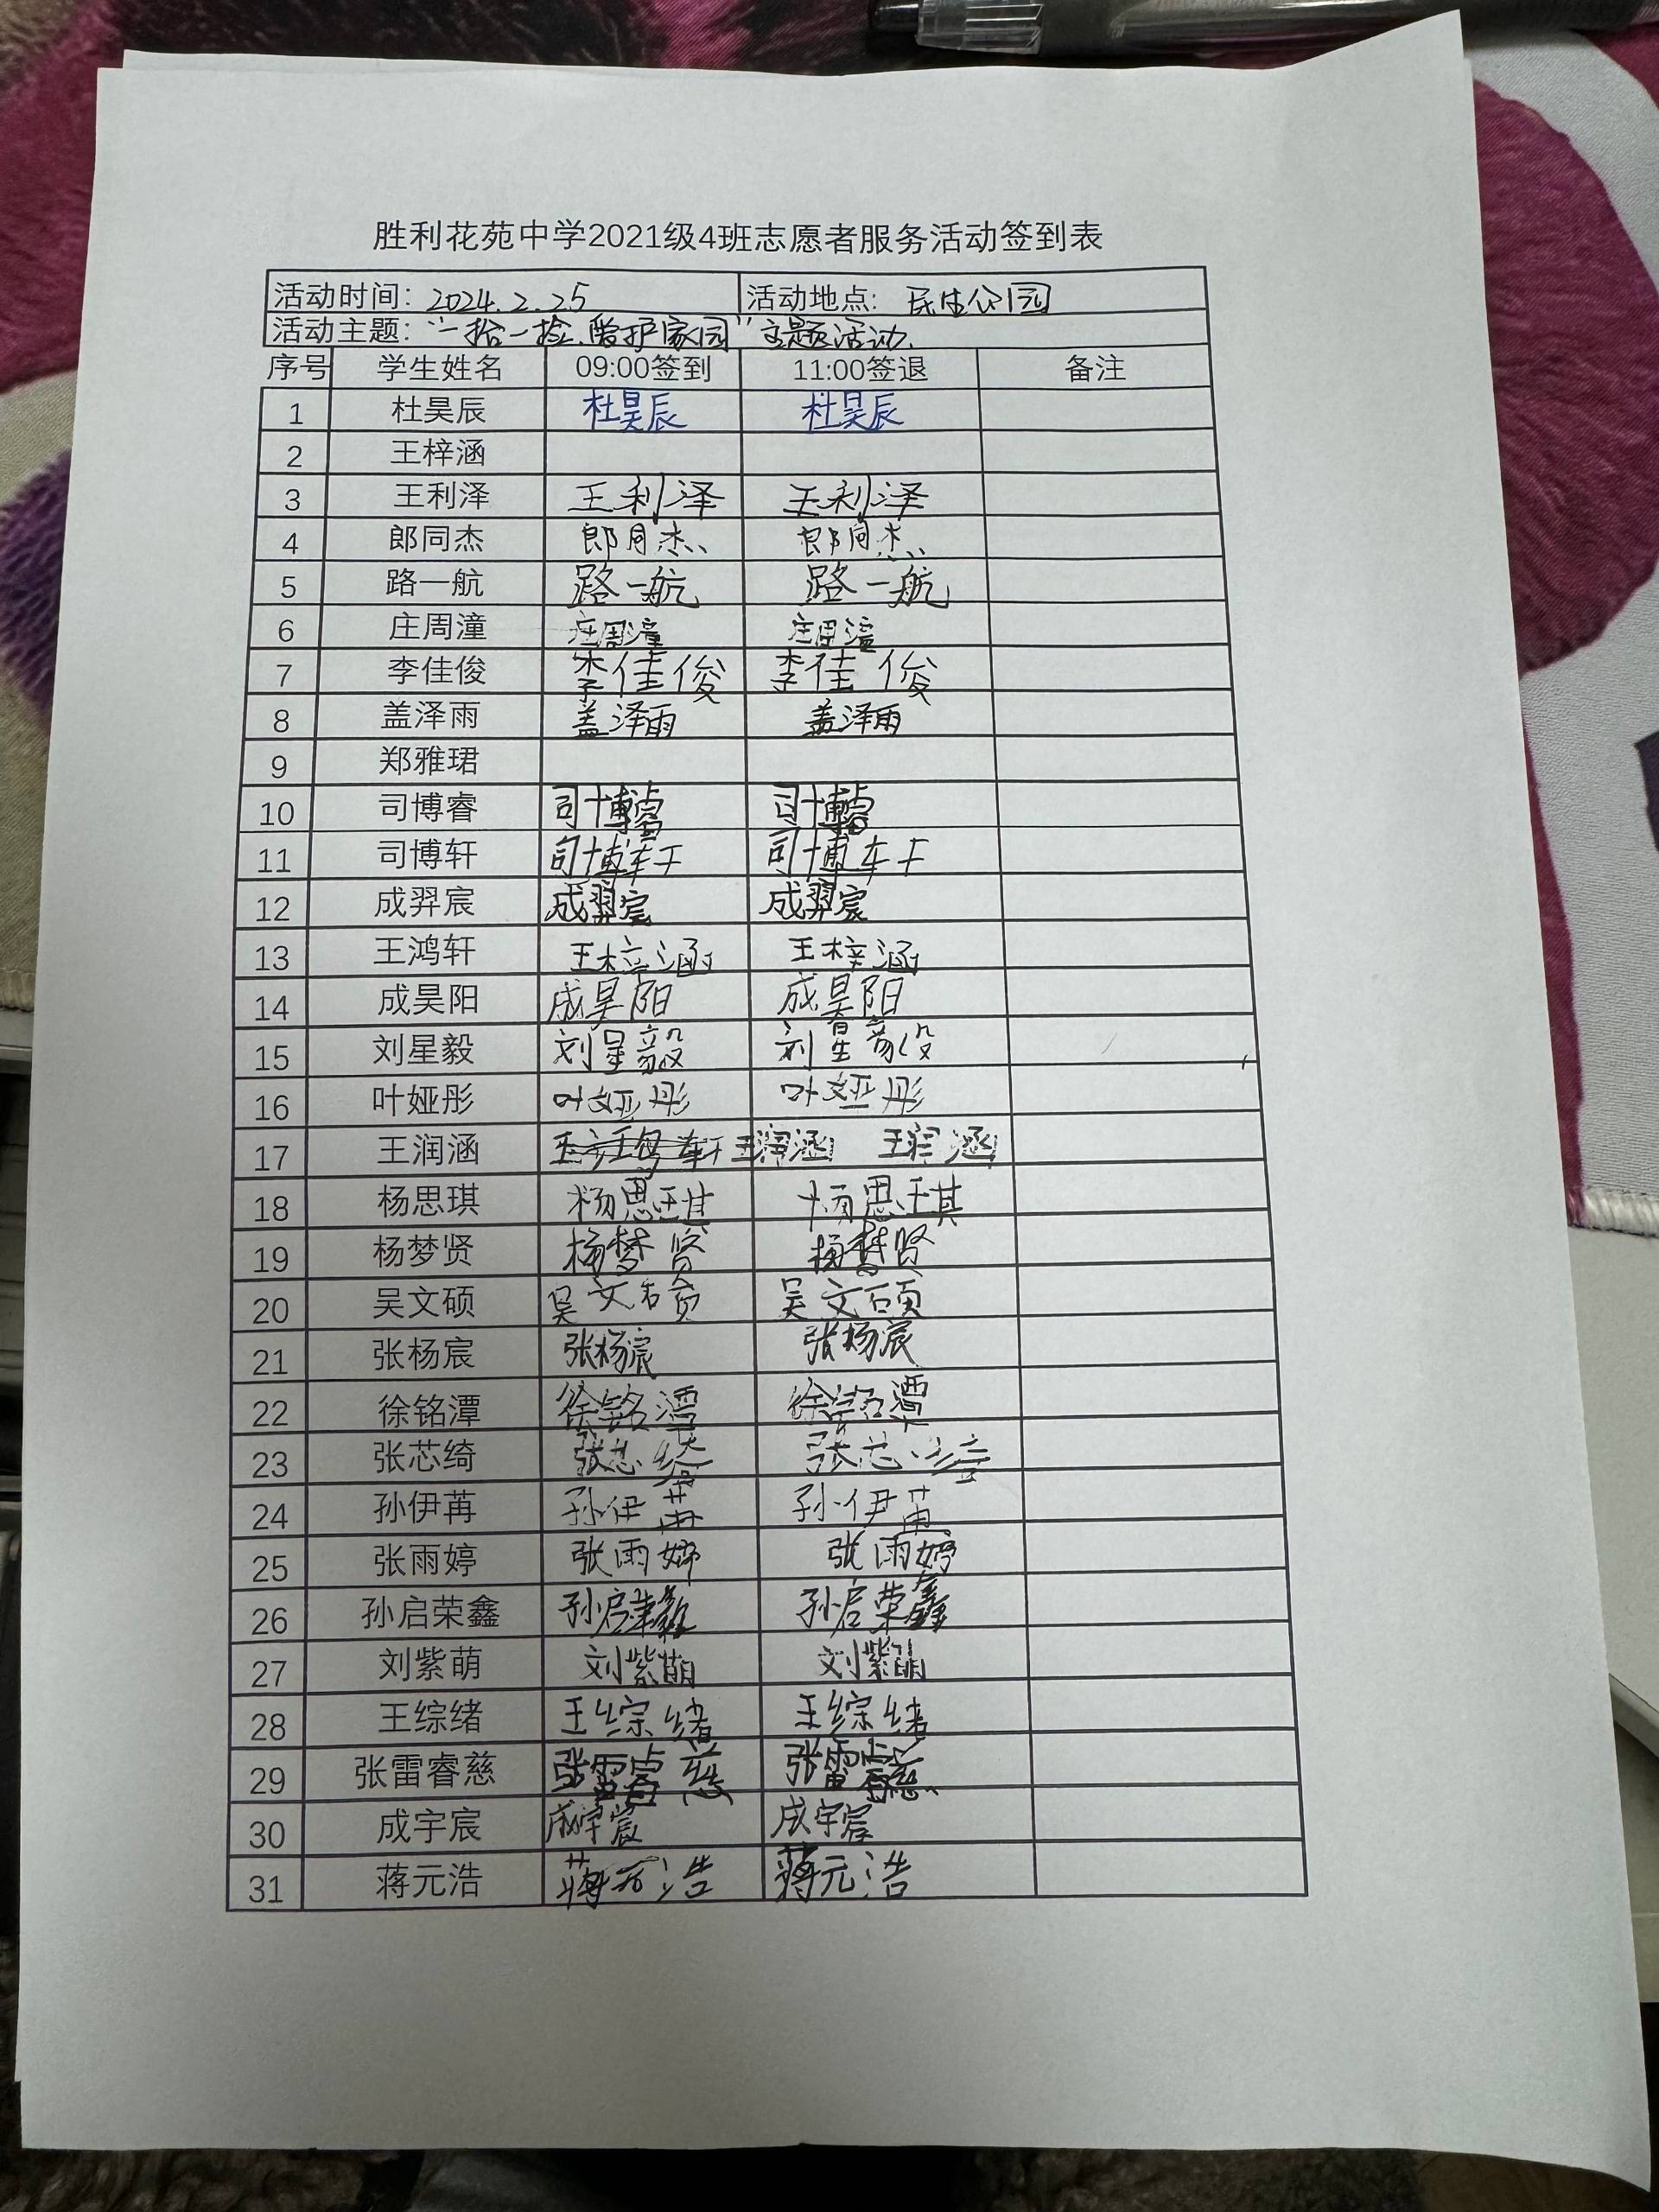 胜利花苑中学2021级4班志愿者服务活动签到表
活动时间: 2024.2.25 活动地点: 民生公园
活动主题: “一拾一捡,爱护家园”主题活动.
序号 学生姓名 09:00签到 11:00签退 备注
1 杜昊辰 杜昊辰 杜昊辰
2 王梓涵
3 王利泽 王利泽 王利泽
4 郎同杰 郎同杰 郎同杰
5 路一航 路一航 路一航
6 庄周潼 庄周潼 庄周潼
7 李佳俊 李佳俊 李佳俊
8 盖泽雨 盖泽雨 盖泽雨
9 郑雅珺
10 司博睿 司博睿 司博睿
11 司博轩 司博轩 司博轩
12 成羿宸 成羿宸 成羿宸
13 王鸿轩 王梓涵 王梓涵
14 成昊阳 成昊阳 成昊阳
15 刘星毅 刘星毅 刘星毅
16 叶娅彤 叶娅彤 叶娅彤
17 王润涵 王润涵 王润涵
18 杨思琪 杨思琪 杨思琪
19 杨梦贤 杨梦贤 杨梦贤
20 吴文硕 吴文硕 吴文硕
21 张杨宸 张杨宸 张杨宸
22 徐铭潭 徐铭潭 徐铭潭
23 张芯绮 张芯绮 张芯绮
24 孙伊苒 孙伊苒 孙伊苒
25 张雨婷 张雨婷 张雨婷
26 孙启荣鑫 孙启荣鑫 孙启荣鑫
27 刘紫萌 刘紫萌 刘紫萌
28 王综绪 王综绪 王综绪
29 张雷睿慈 张雷睿慈 张雷睿慈
30 成宇宸 成宇宸 成宇宸
31 蒋元浩 蒋元浩 蒋元浩